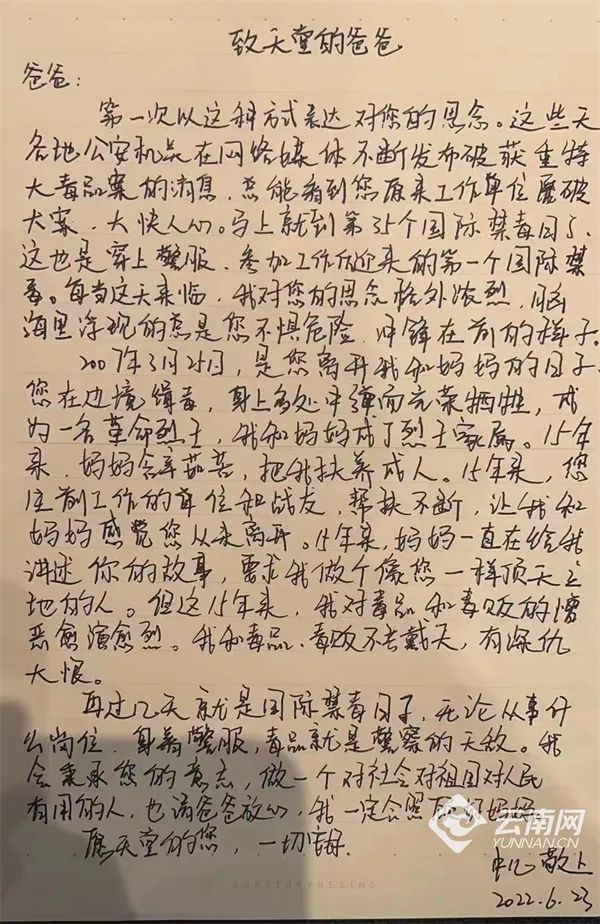 致天堂的爸爸
爸爸：
第一次以这种方式表达对您的思念。这些天
各地公安机关在网络媒体不断发布破获重特
大毒品案的消息，总能看到您原来工作单位屡破
大案，大快人心。马上就到第35个国际禁毒日了，
这也是穿上警服、参加工作后迎来的第一个国际禁
毒。每当这天来临，我对您的思念格外浓烈，脑
海里浮现的总是您不惧危险，冲锋在前的样子。
2007年3月25日，是您离开我和妈妈的日子，
您在边境缉毒，身上多处中弹而光荣牺牲，成
为一名革命烈士，我和妈妈成了烈士家属。15年
来，妈妈含辛茹苦，把我扶养成人。15年来，您
生前工作的单位和战友，帮扶不断，让我和
妈妈感觉您从未离开。15年来，妈妈一直在给我
讲述你的故事，要求我做个像您一样顶天立
地的人。但这15年来，我对毒品和毒贩的憎
恶愈演愈烈。我和毒品、毒贩不共戴天，有深仇
大恨。
再过几天就是国际禁毒日子，无论从事什
么岗位，身着警服，毒品就是警察的天敌。我
会秉承您的意志，做一个对社会对祖国对人民
有用的人，也请爸爸放心，我一定会照顾好妈妈。
愿天堂的您，一切安好.
敬上
2022.6.23
OUR STORY BEGINS
云南网
YUNNAN.CN